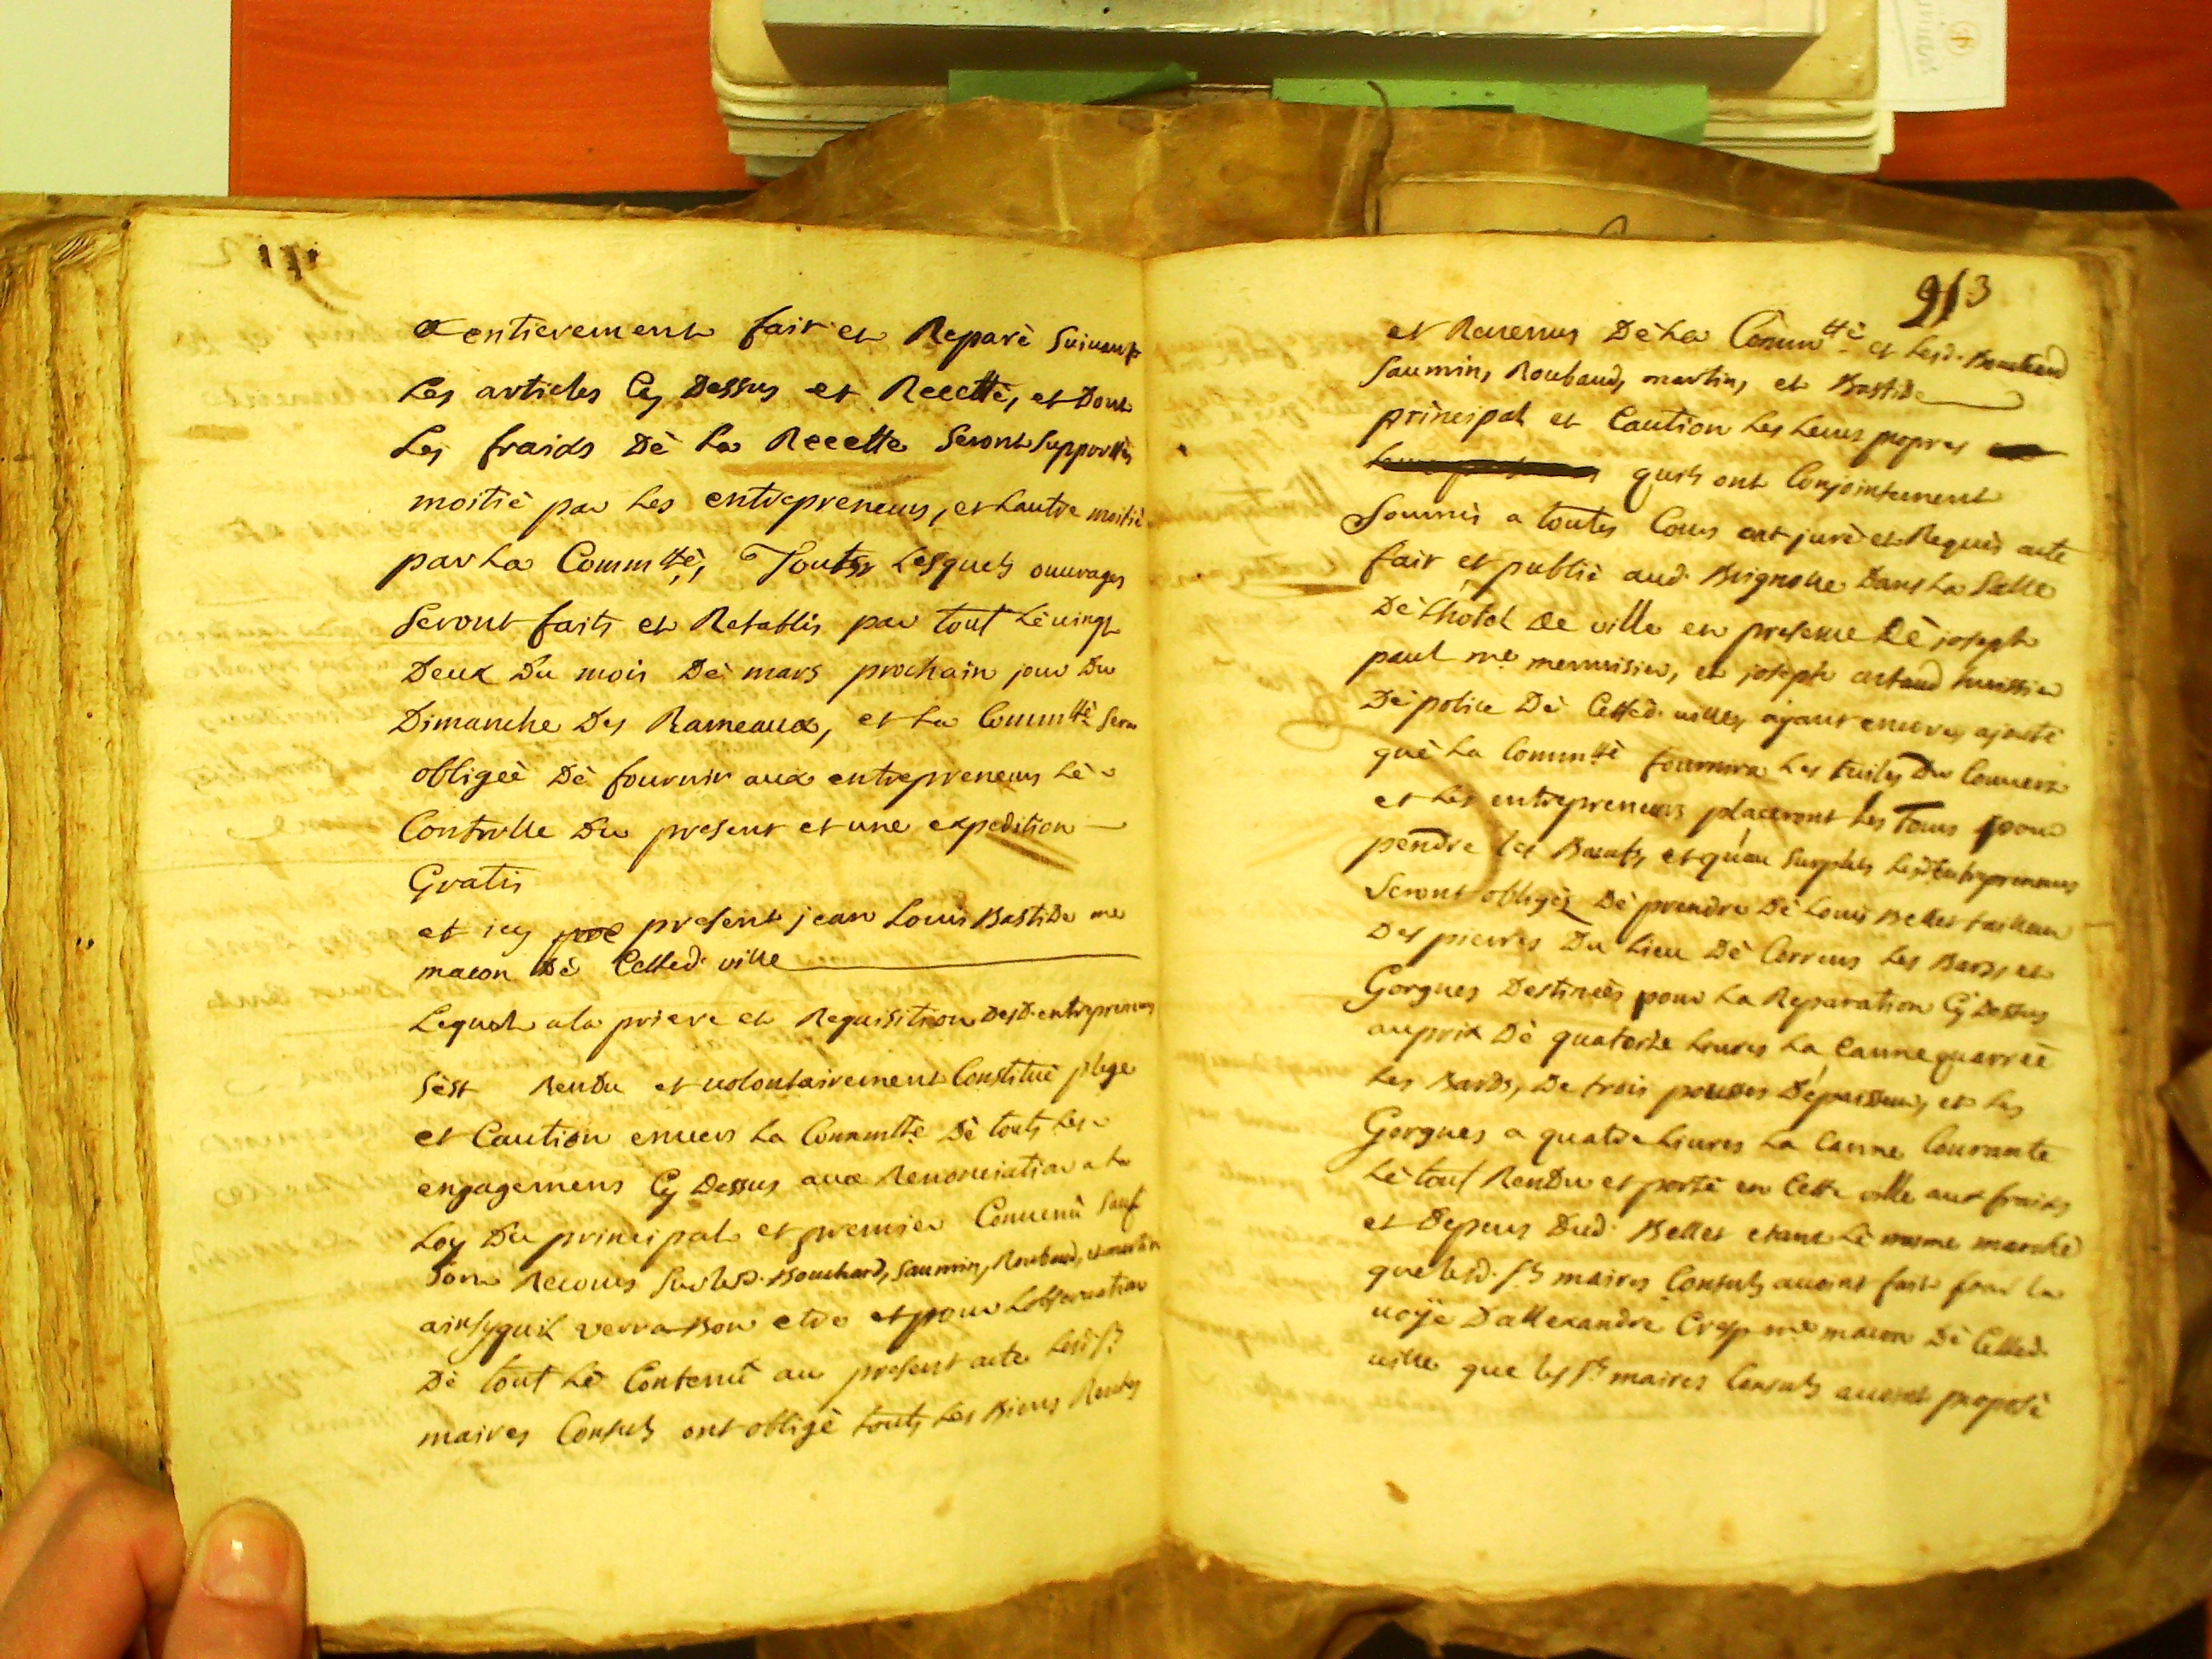 entierement fait et Reparè Suivant
Les articles Cy Dessus et Recetté, et Dont
Les fraids Dè La Recette Seront Supportés
moitié par Les entrepreneurs, et Lautre moitié
par La Commtté, Touts Lesquels ouvrages
Seront faits et Retablis par tout Lè vingt
Deux Du mois Dè mars prochain jour Du
Dimanche Des Rameaux, et La Commtté Sera
obligeè Dè fournir aux entrepreneurs Lè
Controlle Du present et une expedition
Gratis
et icy present jean Louis Bastide me
macon Dè Cetted. ville
Lequel a la priere et Requisition Desd. entrepreneurs
Sést Rendu et volontairement Constitué plege
et Caution envers La Commtté Dè touts Les
engagemens Cy Dessus avec Renonciation a La
Loy Du principal et premier Convenù Sauf
Son Recours Sur lesd. Bouchard, Saumin, Roubaud, et martin
ainsy quil verra Bon etre et pour Lobservation
Dè tout Lè Contenù au present acte Lesd. Srs
maires Consuls ont obligè touts Les Biens Rentes
213
et Revenus Dè La Commtté et Lesd. Bouchard
Saumin, Roubaud, martin, et Bastide
principal et Caution Les Leurs propres
quils ont Conjointement
Soumis a toutes Cours ont juré et Requis acte
fait et publié aud. Brignolle Dans La Salle
Dè Lhotel de ville en presence Dè joseph
paul me menuisier, et joseph artaud huissier
Dè police Dè Cetted. ville, ajant encore ajouté
què La Commtté fournira Les tuiles Du Couvert
et Les entrepreneurs placeront Les Tours pour
pendre les Bœufs, et quau Surplus Lesd. Entrepreneurs
Seront obligés Dè prendre Dè Louis Bellet tailleur
Des pierres Du Lieu Dè Correns Les Bards, et
Gorgues Destineès pour La Reparation Cy Dessus
au prix Dè quatorze Livres La Canne quarreè
Les Bards, De trois pouces Dépaisseur, et Les
Gorgues a quatre Livres La Canne Courante
Lè tout Rendu et porté en Cette ville aux fraids
et Depens Dud. Bellet etant Lè meme marché
que lesd. Srs maires Consuls avoint fait par la
voÿe Dallexandre Cresp me macon Dè Cetted.
ville que les Srs maires Consuls avoint proposé